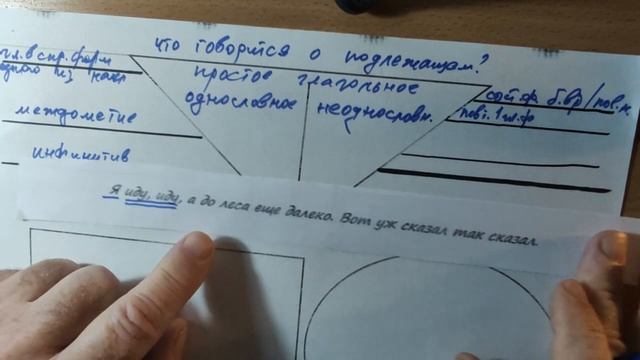 что говорится о подлежащем?
гл. в спр. форм
одного из накл
простое глагольное
однословное неоднословн.
междометие
инфинитив
повт. 1 гл. ф
Я иду, иду, а до леса еще далеко. Вот уж сказал так сказал.